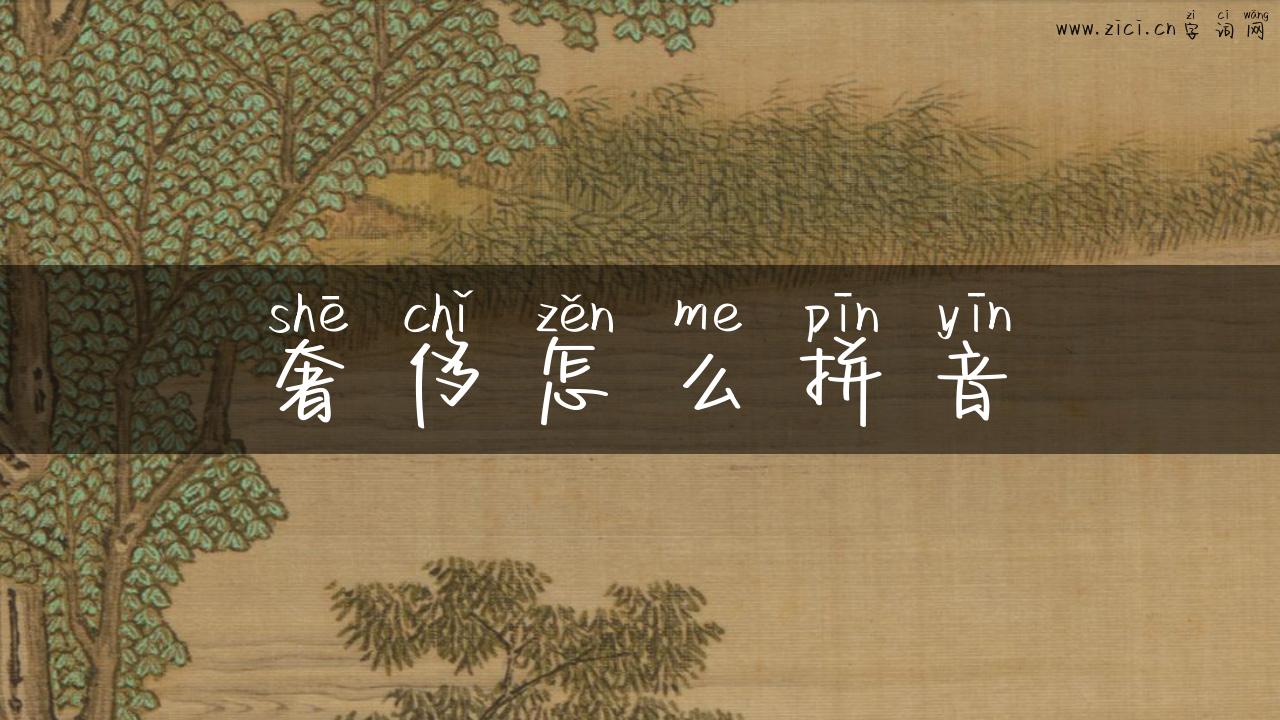 zì cí wǎng
www.zici.cn字词网
shē chǐ zěn me pīn yīn
奢侈怎么拼音